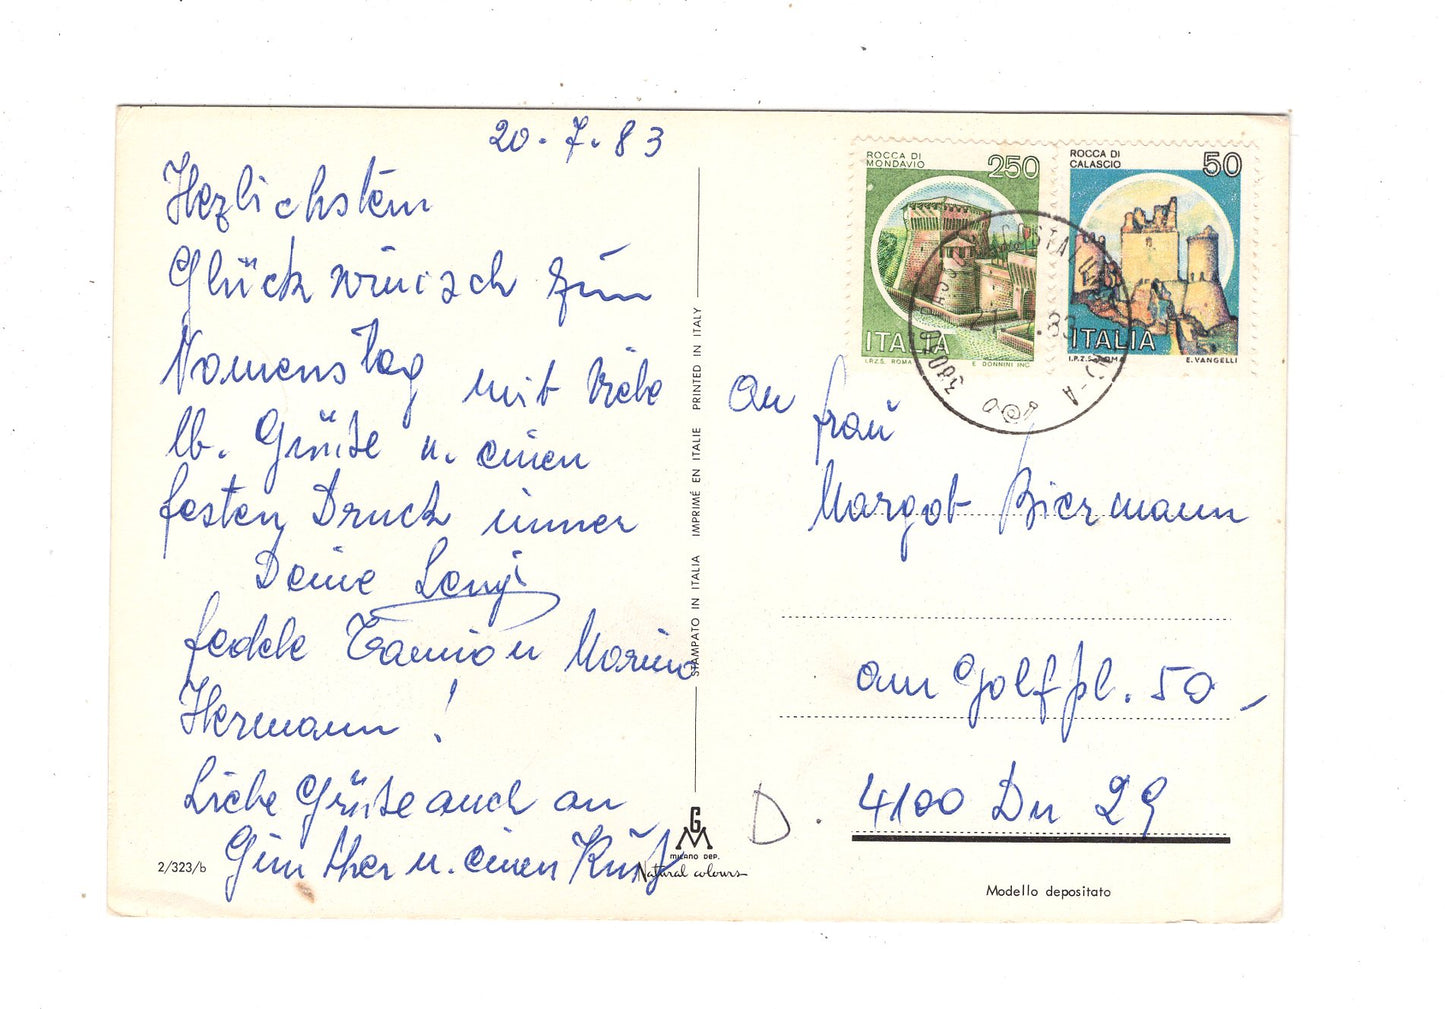 20.7.83
Herzlichsten
Glückwunsch zum
Namenstag mit viele
lb. Grüße u. einen
festen Druck immer
Deine Leny
fedele u Marino
Hermann!
Liebe Grüße auch an
Günther u. einen Kuß
2/323/b
STAMPATO IN ITALIA IMPRIMÉ EN ITALIE PRINTED IN ITALY
GM
MILANO DEP.
Natural colours
ROCCA DI
MONDAVIO
250
ITALIA
I.P.Z.S. ROMA E. DONNINI INC.
ROCCA DI
CALASCIO
50
ITALIA
I.P.Z.S. ROMA E. VANGELLI
An Frau
Margot Biermann
am Golfpl. 50
D. 4100 Du 29
Modello depositato